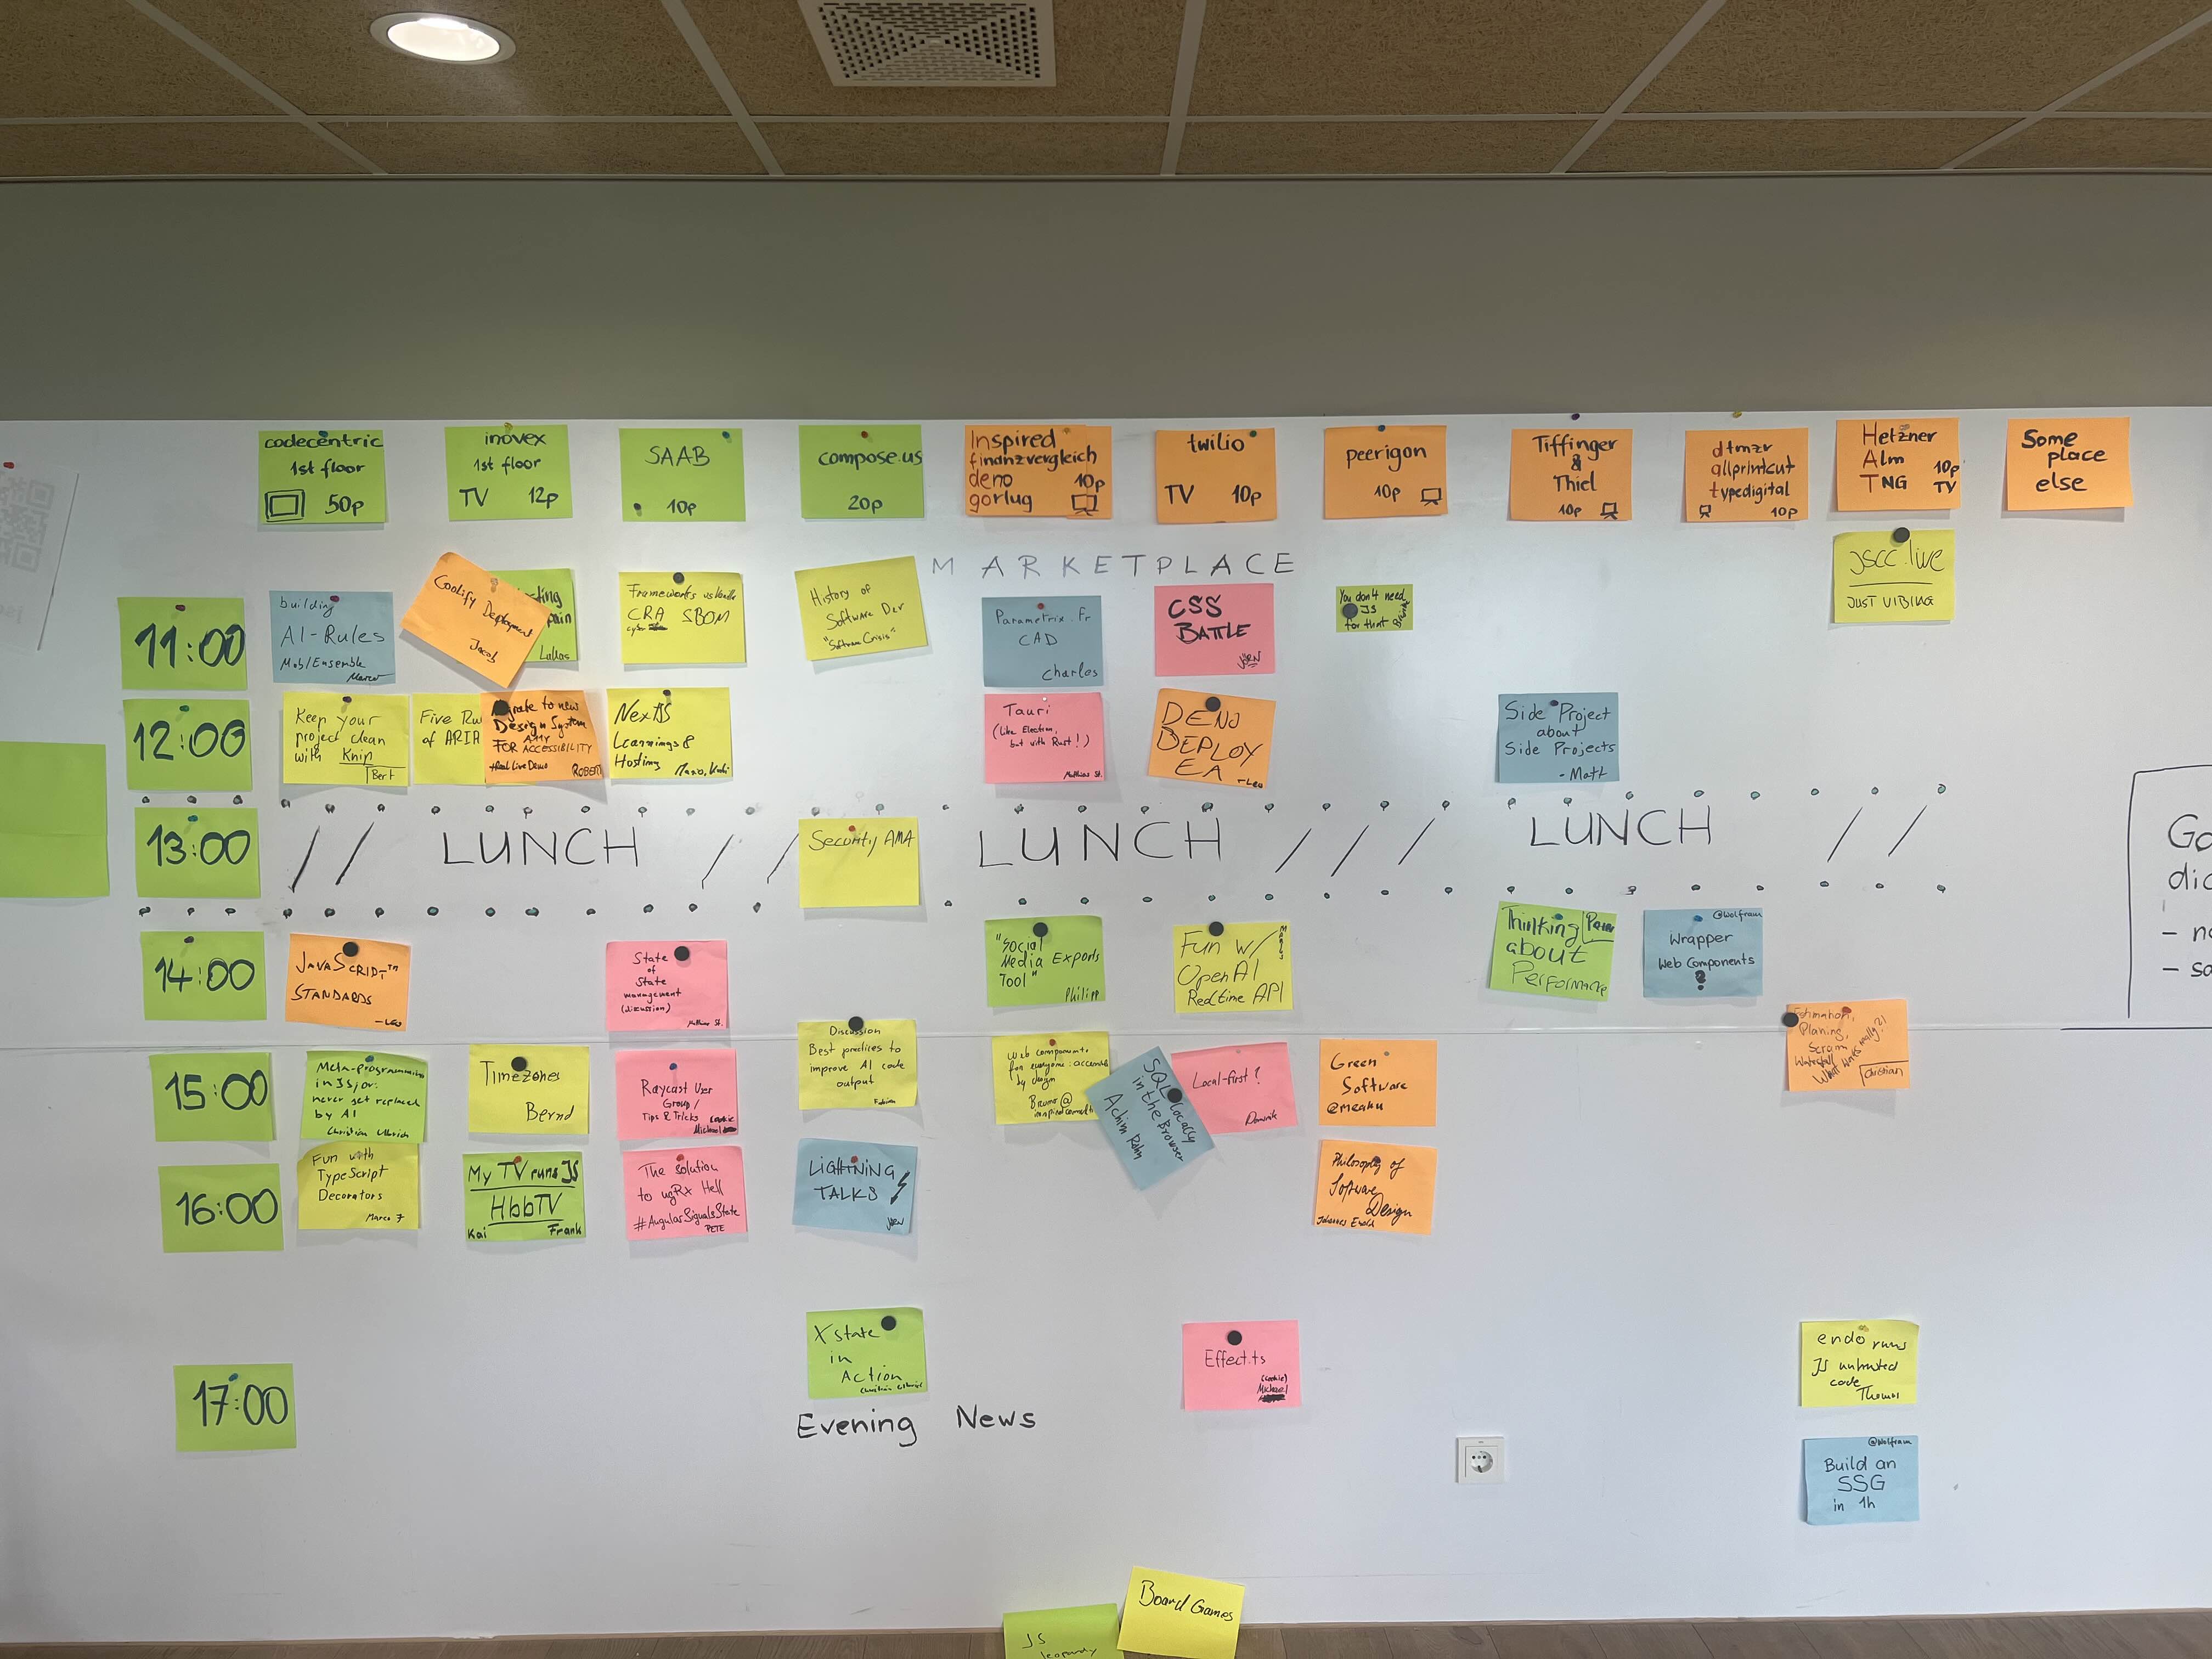 codecentric
1st floor
50p
inovex
1st floor
TV 12p
SAAB
10p
compose.us
20p
Inspired
finanzvergleich
deno 10p
gorlug
twilio
TV 10p
peerigon
10p
Tiffinger
&
Thiel
10p
dtmzr
allprintcut
typedigital
10p
Hetzner
Alm 10p
TNG TV
Some
place
else
MARKETPLACE
11:00
building
AI-Rules
Mob/Ensemble
Marco
Coolify Deployment
Jacob
sting
pain
Lukas
Frameworks
CRA SBOM
cyber
History of
Software Dev
"Software Crisis"
Parametrix.fr
CAD
Charles
CSS
BATTLE
JÖRN
You don't need
JS
for that
jscc.live
JUST VIBING
12:00
Keep your
project clean
with Knip
Bert
Five Ru
of ARIA
grate to new
Design System
A11y
FOR ACCESSIBILITY
+Real Live Demo ROBERT
NextJS
Learnings &
Hosting
Tauri
(Like Electron,
but with Rust!)
Matthias St.
DENO
DEPLOY
EA
-Leo
Side Project
about
Side Projects
- Matt
13:00
// LUNCH // LUNCH /// LUNCH //
Security AMA
14:00
JAVASCRIPT™
STANDARDS
-Leo
State
of
State
management
(discussion)
Matthias St.
"Social
Media Exports
Tool"
Philipp
Fun w/
OpenAI
Realtime API
Thinking
about
Performance
Peter
@Wolfram
Wrapper
Web Components
?
Estimation,
Planing,
Scrum
Waterfall
What works really?!
Christian
15:00
Meta-programming
in JS, or:
never get replaced
by AI
Christian Ulbrich
Timezones
Bernd
Raycast User
Group /
Tips & Tricks
Michael
Discussion
Best practices to
improve AI code
output
Fabian
Web components
for everyone: accessible
by design
Bruno @
SQL locally
in the Browser
Achim Rohn
Local-first?
Dominik
Green
Software
@meaku
16:00
Fun with
TypeScript
Decorators
Marco F
My TV runs JS
HbbTV
Kai Frank
The solution
to ngRx Hell
#AngularSignalsState
PETE
LIGHTNING
TALKS
JÖRN
Philosophy of
Software
Design
17:00
X state
in
Action
Christian Ulbrich
Effect.ts
(cookie)
Michael
endo runs
JS untrusted
code
Thomas
Evening News
@Wolfram
Build an
SSG
in 1h
Board Games
JS
Jeopardy
Go
dic
- no
- so